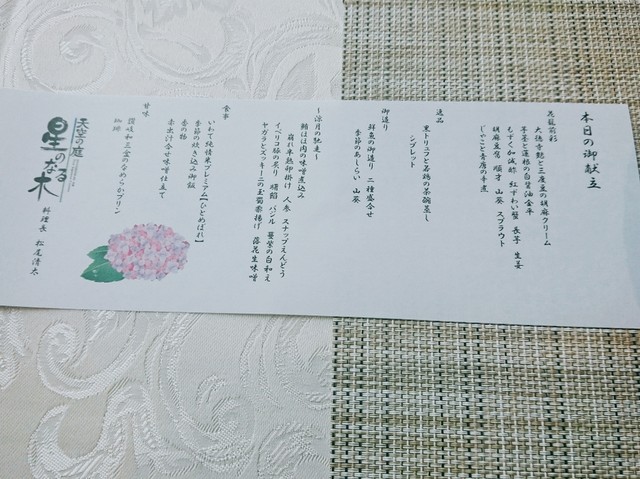 本日の御献立
花籠前彩
大徳寺麩と三度豆の胡麻クリーム
芋茎と蓮根の白醤油金平
もずく加減酢 紅ずわい蟹 長芋 生姜
胡麻豆腐 順才 山葵 スプラウト
じゃこと青唐の辛煮
逸品
黒トリュフと若鶏の茶碗蒸し
シブレット
御造り
鮮魚の御造り 二種盛合せ
季節のあしらい 山葵
～涼月の馳走～
鮪ほほ肉の味噌煮込み
崩れ半熟卵掛け 人参 スナップえんどう
イベリコ豚の炙り 蛸 バジル 蔓紫の白和え
ヤガラとズッキーニの玉蜀黍揚げ 落花生味噌
食事
いわて純情米プレミアム【ひとめぼれ】
季節の炊き込み御飯
香の物
赤出汁合せ味噌仕立て
甘味
讃岐和三盆のなめらかプリン
珈琲
天空の庭
星のなる木
料理長 松尾清太